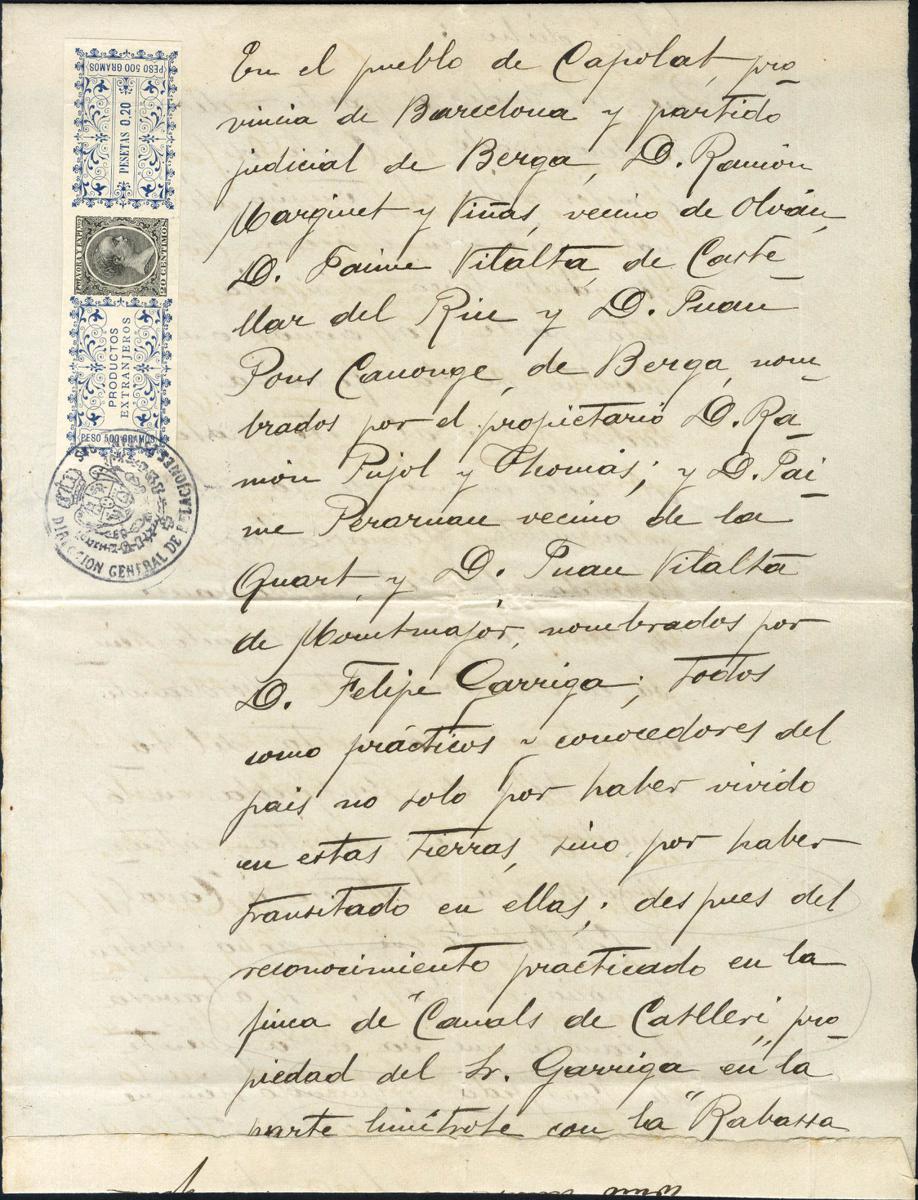 PESO 500 GRAMOS
PESETAS 0,20
20 CENTIMOS
PRODUCTOS
EXTRANJEROS
PESO 500 GRAMOS
DIRECCION GENERAL DE
En el pueblo de Capolat, pro-
vincia de Barcelona y partido
judicial de Berga, D. Ramón
Marginet y Viñas, vecino de Olván,
D. Jaime Vilalta, de Caste-
llar del Riu y D. Juan
Pons Canonge, de Berga, nom-
brados por el propietario D. Ra-
món Pujol y Thomás; y D. Jai-
me Perarnau vecino de la
Quart, y D. Juan Vilalta
de Montmajor, nombrados por
D. Felipe Garriga; todos
como prácticos y conocedores del
pais no solo por haber vivido
en estas tierras, sino por haber
transitado en ellas; despues del
reconocimiento practicado en la
finca de "Canals de Catlleri" pro-
piedad del Sr. Garriga en la
parte limítrofe con la "Rabassa